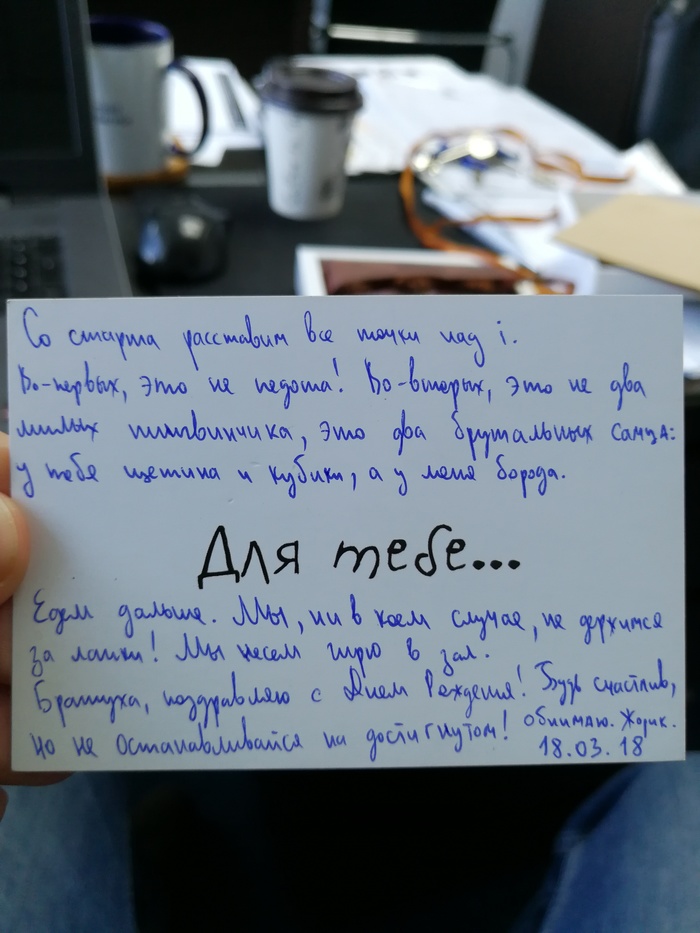 Со старта расставим все точки над i.
Во-первых, это не педота! Во-вторых, это не два
милых пингвинчика, это два брутальных самца:
у тебя щетина и кубики, а у меня борода.
Для тебе...
Едем дальше. Мы, ни в коем случае, не держимся
за лапки! Мы несем гирю в зал.
Братуха, поздравляю с Днем Рождения! Будь счастлив,
но не останавливайся на достигнутом! обнимаю. Жорик.
18.03.18